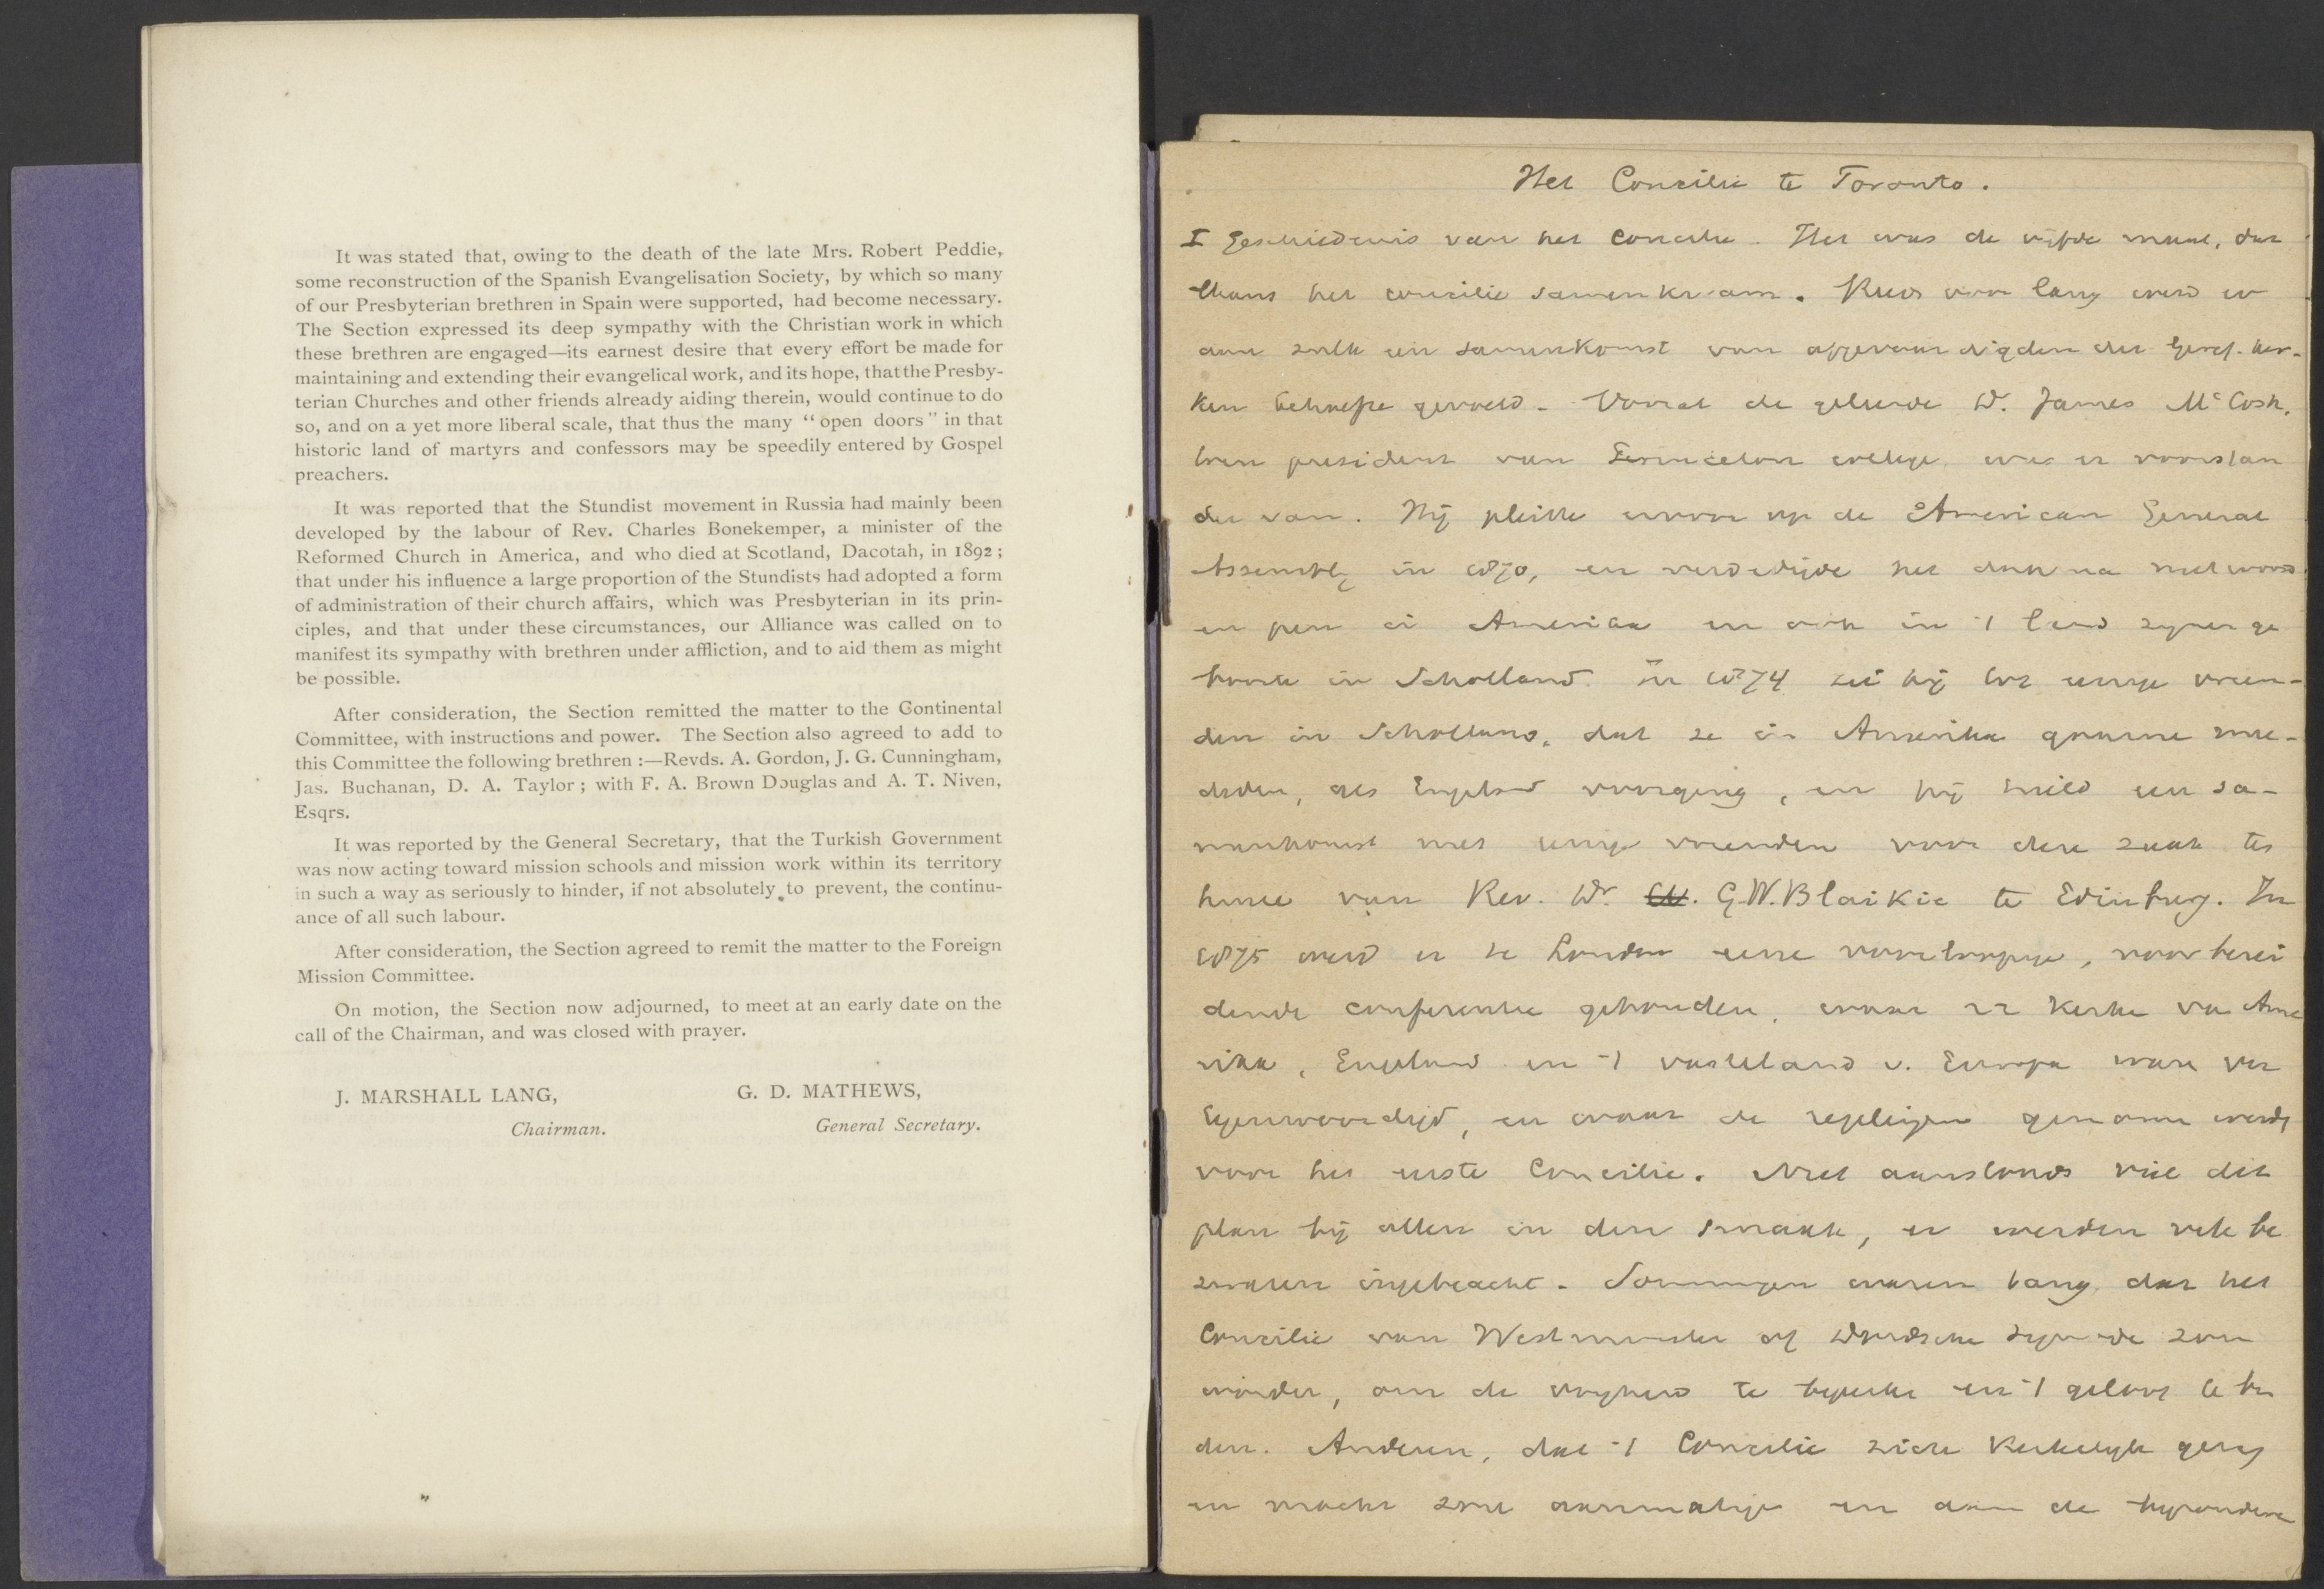 It was stated that, owing to the death of the late Mrs. Robert Peddie,
some reconstruction of the Spanish Evangelisation Society, by which so many
of our Presbyterian brethren in Spain were supported, had become necessary.
The Section expressed its deep sympathy with the Christian work in which
these brethren are engaged—its earnest desire that every effort be made for
maintaining and extending their evangelical work, and its hope, that the Presby-
terian Churches and other friends already aiding therein, would continue to do
so, and on a yet more liberal scale, that thus the many “open doors” in that
historic land of martyrs and confessors may be speedily entered by Gospel
preachers.
It was reported that the Stundist movement in Russia had mainly been
developed by the labour of Rev. Charles Bonekemper, a minister of the
Reformed Church in America, and who died at Scotland, Dacotah, in 1892;
that under his influence a large proportion of the Stundists had adopted a form
of administration of their church affairs, which was Presbyterian in its prin-
ciples, and that under these circumstances, our Alliance was called on to
manifest its sympathy with brethren under affliction, and to aid them as might
be possible.
After consideration, the Section remitted the matter to the Continental
Committee, with instructions and power. The Section also agreed to add to
this Committee the following brethren :—Revds. A. Gordon, J. G. Cunningham,
Jas. Buchanan, D. A. Taylor; with F. A. Brown Douglas and A. T. Niven,
Esqrs.
It was reported by the General Secretary, that the Turkish Government
was now acting toward mission schools and mission work within its territory
in such a way as seriously to hinder, if not absolutely to prevent, the continu-
ance of all such labour.
After consideration, the Section agreed to remit the matter to the Foreign
Mission Committee.
On motion, the Section now adjourned, to meet at an early date on the
call of the Chairman, and was closed with prayer.
J. MARSHALL LANG,
Chairman.
G. D. MATHEWS,
General Secretary.
Het Concilie te Toronto.
I Geschiedenis van het Concilie. Het was de vijfde maal, dat
thans het concilie samenkwam. Reeds voor lang werd er
aan zulk een samenkomst van afgevaardigden der Geref. Ker-
ken behoefte gevoeld. Vooral de geleerde Dr. James McCosh,
toen president van Princeton college was er voorstan
der van. Hij pleitte ervoor op de American General
Assembly in 1870, en verdedigde het daarna met woord
en pen in Amerika en ook in 't land zijner ge
boorte in Schotland. In 1874 zei hij tot eenige vrien-
den in Schotland, dat ze in Amerika gaarne mee-
deden, als Engeland voorging, en hij hield een sa-
menkomst met eenige vrienden voor deze zaak ten
huize van Rev. Dr. G.W. Blaikie te Edinburg. In
1875 werd er te Londen eene voorloopige, voorberei
dende conferentie gehouden, waar 22 kerken van Ame
rika, Engeland en 't vasteland v. Europa waren ver
tegenwoordigd, en waar de regelingen genomen werden
voor het eerste Concilie. Niet aanstonds viel dit
plan bij allen in den smaak, er werden vele be
zwaren ingebracht. Sommigen waren bang dat het
Concilie van Westminster of Dordsche Synode zou
worden, om de vrijheid te beperken en 't geloof te bin
den. Anderen, dat 't Concilie zich kerkelijk gezag
en macht zou aanmatigen en dan de bijzondere